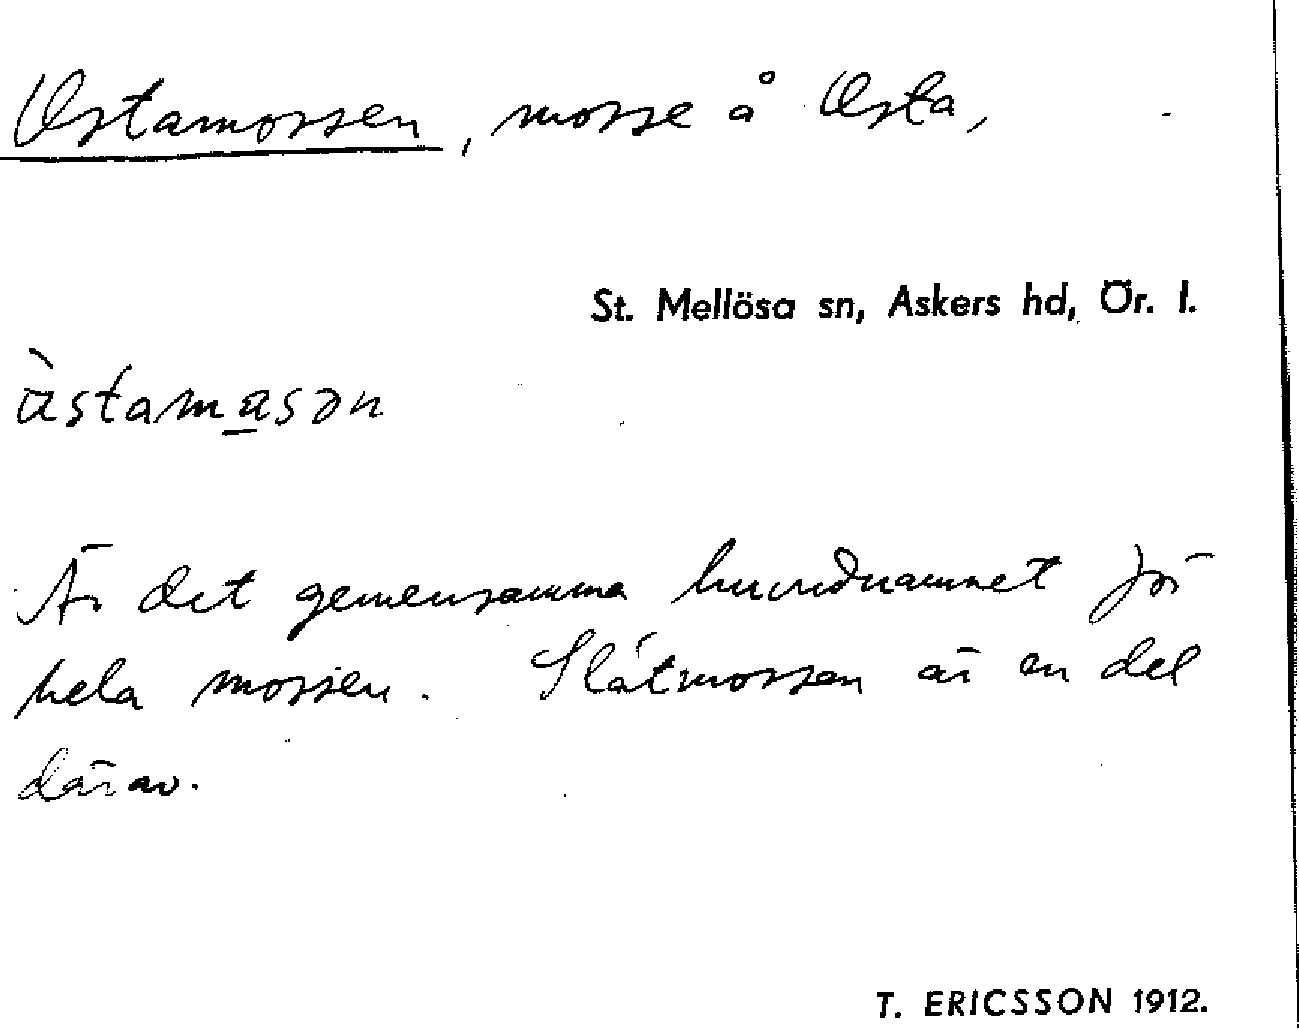 Ostamossen, mosse å Osta,
St. Mellösa sn, Askers hd, Ör. l.
àstama̲sən
Är det gemensamma huvudnamnet för
hela mossen. Slåtmossen är en del
därav.
T. ERICSSON 1912.